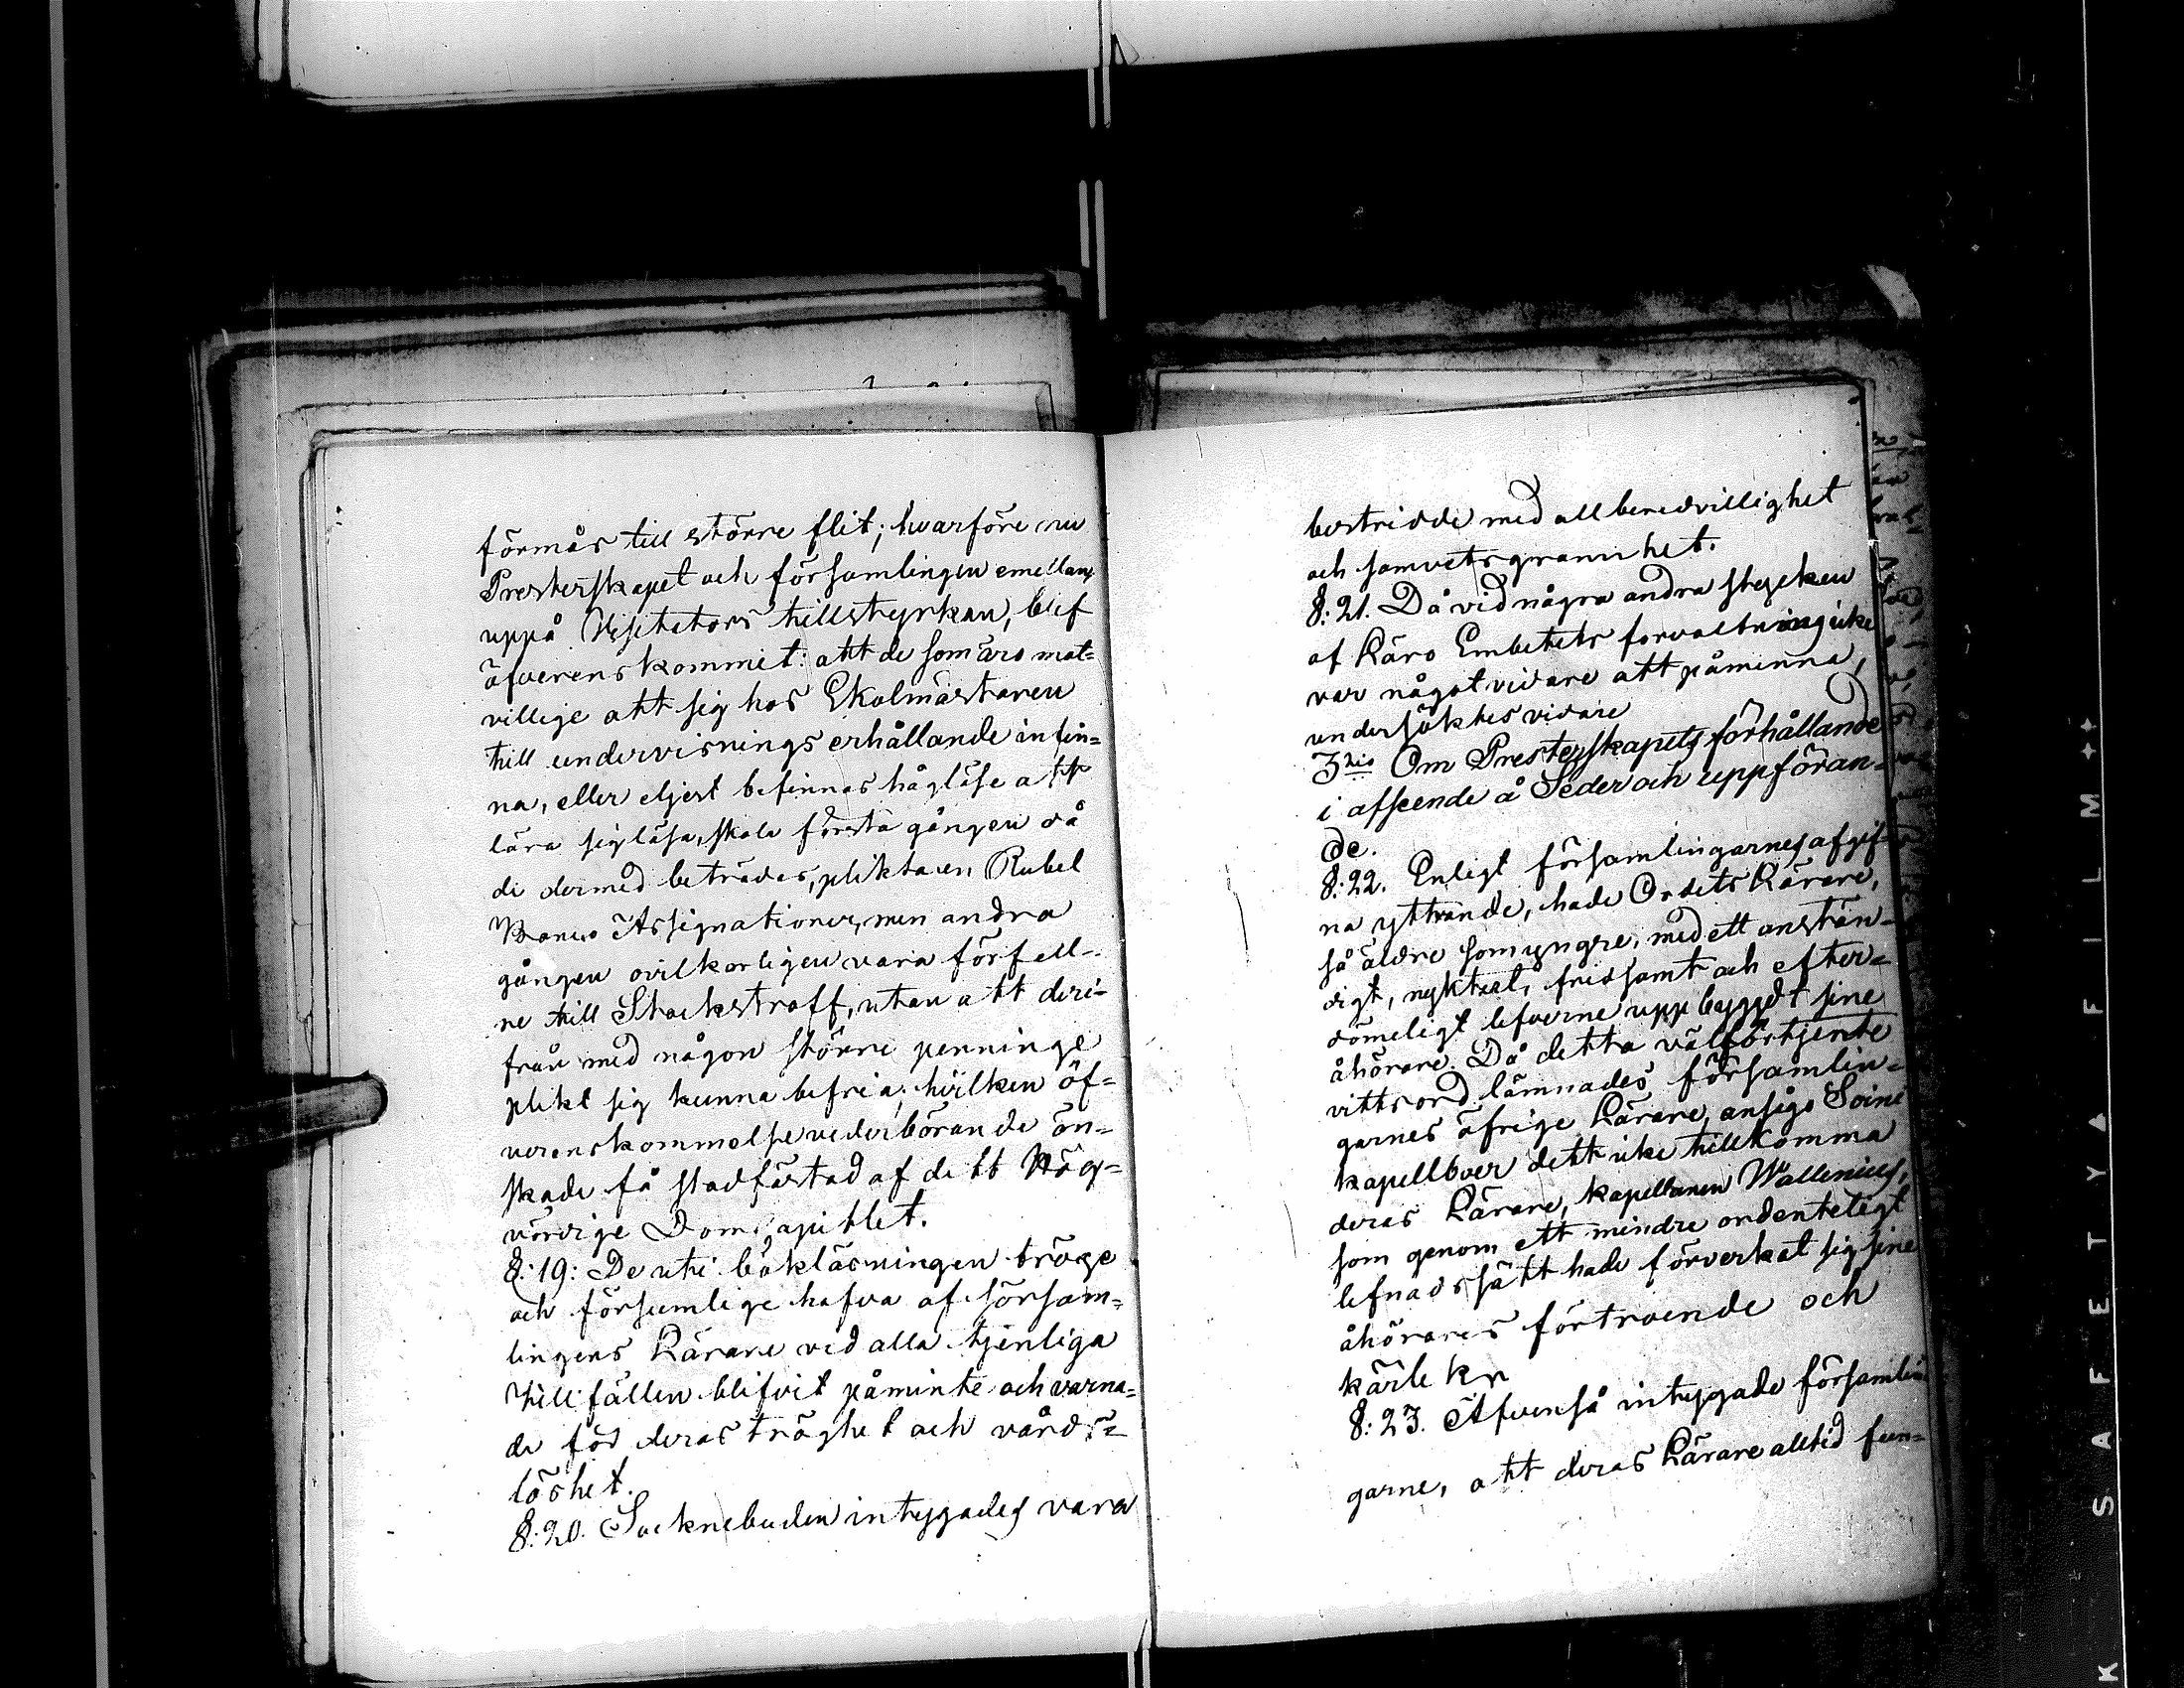 förmås till större flit; hvarföre nu
Presterskapet och församlingen emellan,
uppå Visitators tillstyrkan, blef
öfverenskommet: att de som äro mot-
villige att sig hos Skolmästaren
till undervisnings erhållande infin-
na, eller eljest befinnas håglöse att
lära sig läsa, skola första gången då
de dermed beträdas, plikta en Rubel
Banco Assignationer, men andra
gången ovilkorligen vara förfell-
ne till Stockstraff, utan att deri-
från med någon större penninge
plikt sig kunna befria; hvilken öf-
verenskommelse vederbörande ön-
skade få stadfästad af dett Hög-
vördige Domcapitlet.
§: 19: De uti bokläsningen tröge
och försumlige hafva af försam-
lingens Lärare ved alla tjenliga
tillfällen blifvit påminte och varna-
de för deras tröghet och vårds-
löshet.
§: 20. Socknebuden intygades vara
bestridde med all beredvillighet
och samvetsgrannhet.
§: 21. Då vid några andra stycken
af Läro Embetets forvaltning icke
var något vidare att påminna,
undersöktes vidare
3tio Om Presterskapets förhållande
i afseende å Seder och uppföran-
de.
§: 22. Enligt församlingarnes afgif-
na yttrande, hade Ordets Lärare,
så äldre som yngre, med ett anstän-
digt, nyktert, fridsamt och efter-
dömeligt lefverne uppbyggdt sine
åhörare. Då detta välförtjente
vittsord lämnades församlin-
garnes öfrige Lärare, ansågo Soini
kapellboer dett icke tillkomma
deras Lärare, kapellanen Wallenius,
som genom ett mindre ordenteligt
lefnadssätt hade förverkat sig sine
åhörares förtroende och
kärlek
§: 23. Äfvenså intygade församlin
garne, att deras Lärare alltid fun-
SAFETY FILM
K